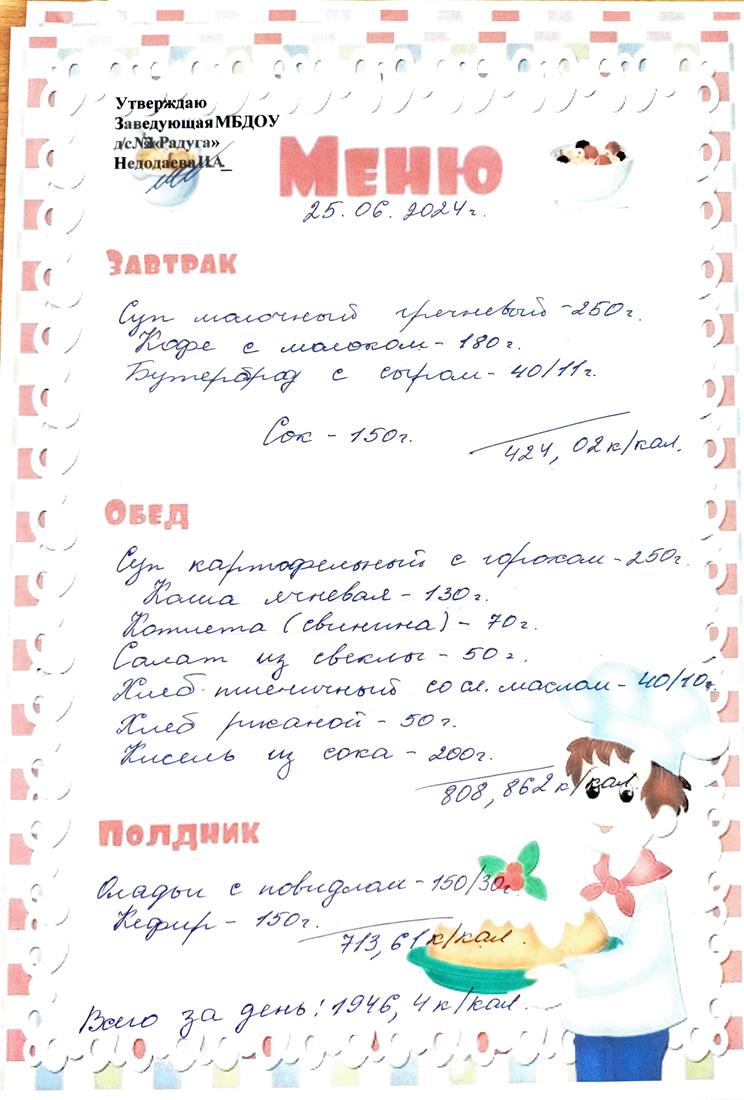 Утверждаю
Заведующая МБДОУ
д/с «Радуга»
Недодаева И.А._
Меню
25. 06. 2024г.
Завтрак
Суп молочный гречневый - 250г.
Кофе с молоком - 180г.
Бутерброд с сыром - 40/11г.
Сок - 150г.
424, 02 к/кал.
Обед
Суп картофельный с горохом - 250г.
Каша ячневая - 130г.
Котлета (свинина) - 70г.
Салат из свеклы - 50г.
Хлеб пшеничный со сл. маслом - 40/10г.
Хлеб ржаной - 50г.
Кисель из сока - 200г.
808, 862 к/кал.
Полдник
Оладьи с повидлом - 150/30г.
Кефир - 150г.
713, 61 к/кал.
Всего за день: 1946, 4 к/кал.